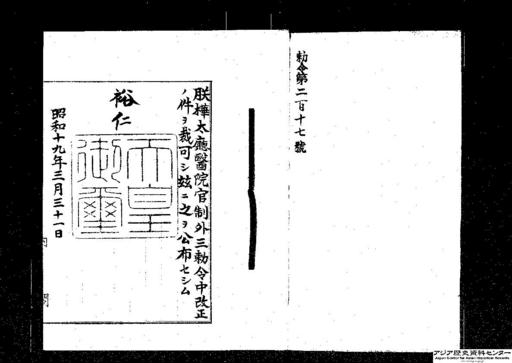 勅令第二百十七號
朕樺太廳醫院官制外三勅令中改正
ノ件ヲ裁可シ茲ニ之ヲ公布セシム
裕仁
天皇御璽
昭和十九年三月三十一日
内閣
アジア歴史資料センター
Japan Center for Asian Historical Records